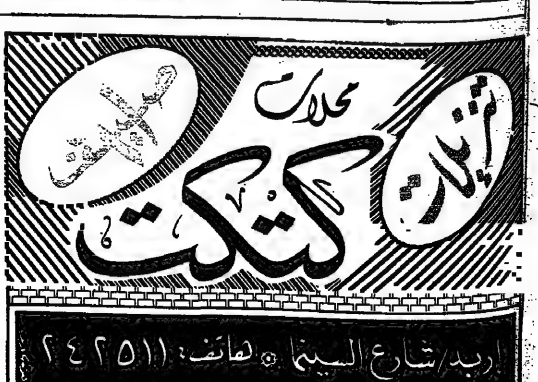 محلات
كتكت
تنزيلات
اربد/شارع السينما * هاتف: ٢٤٢٥١١